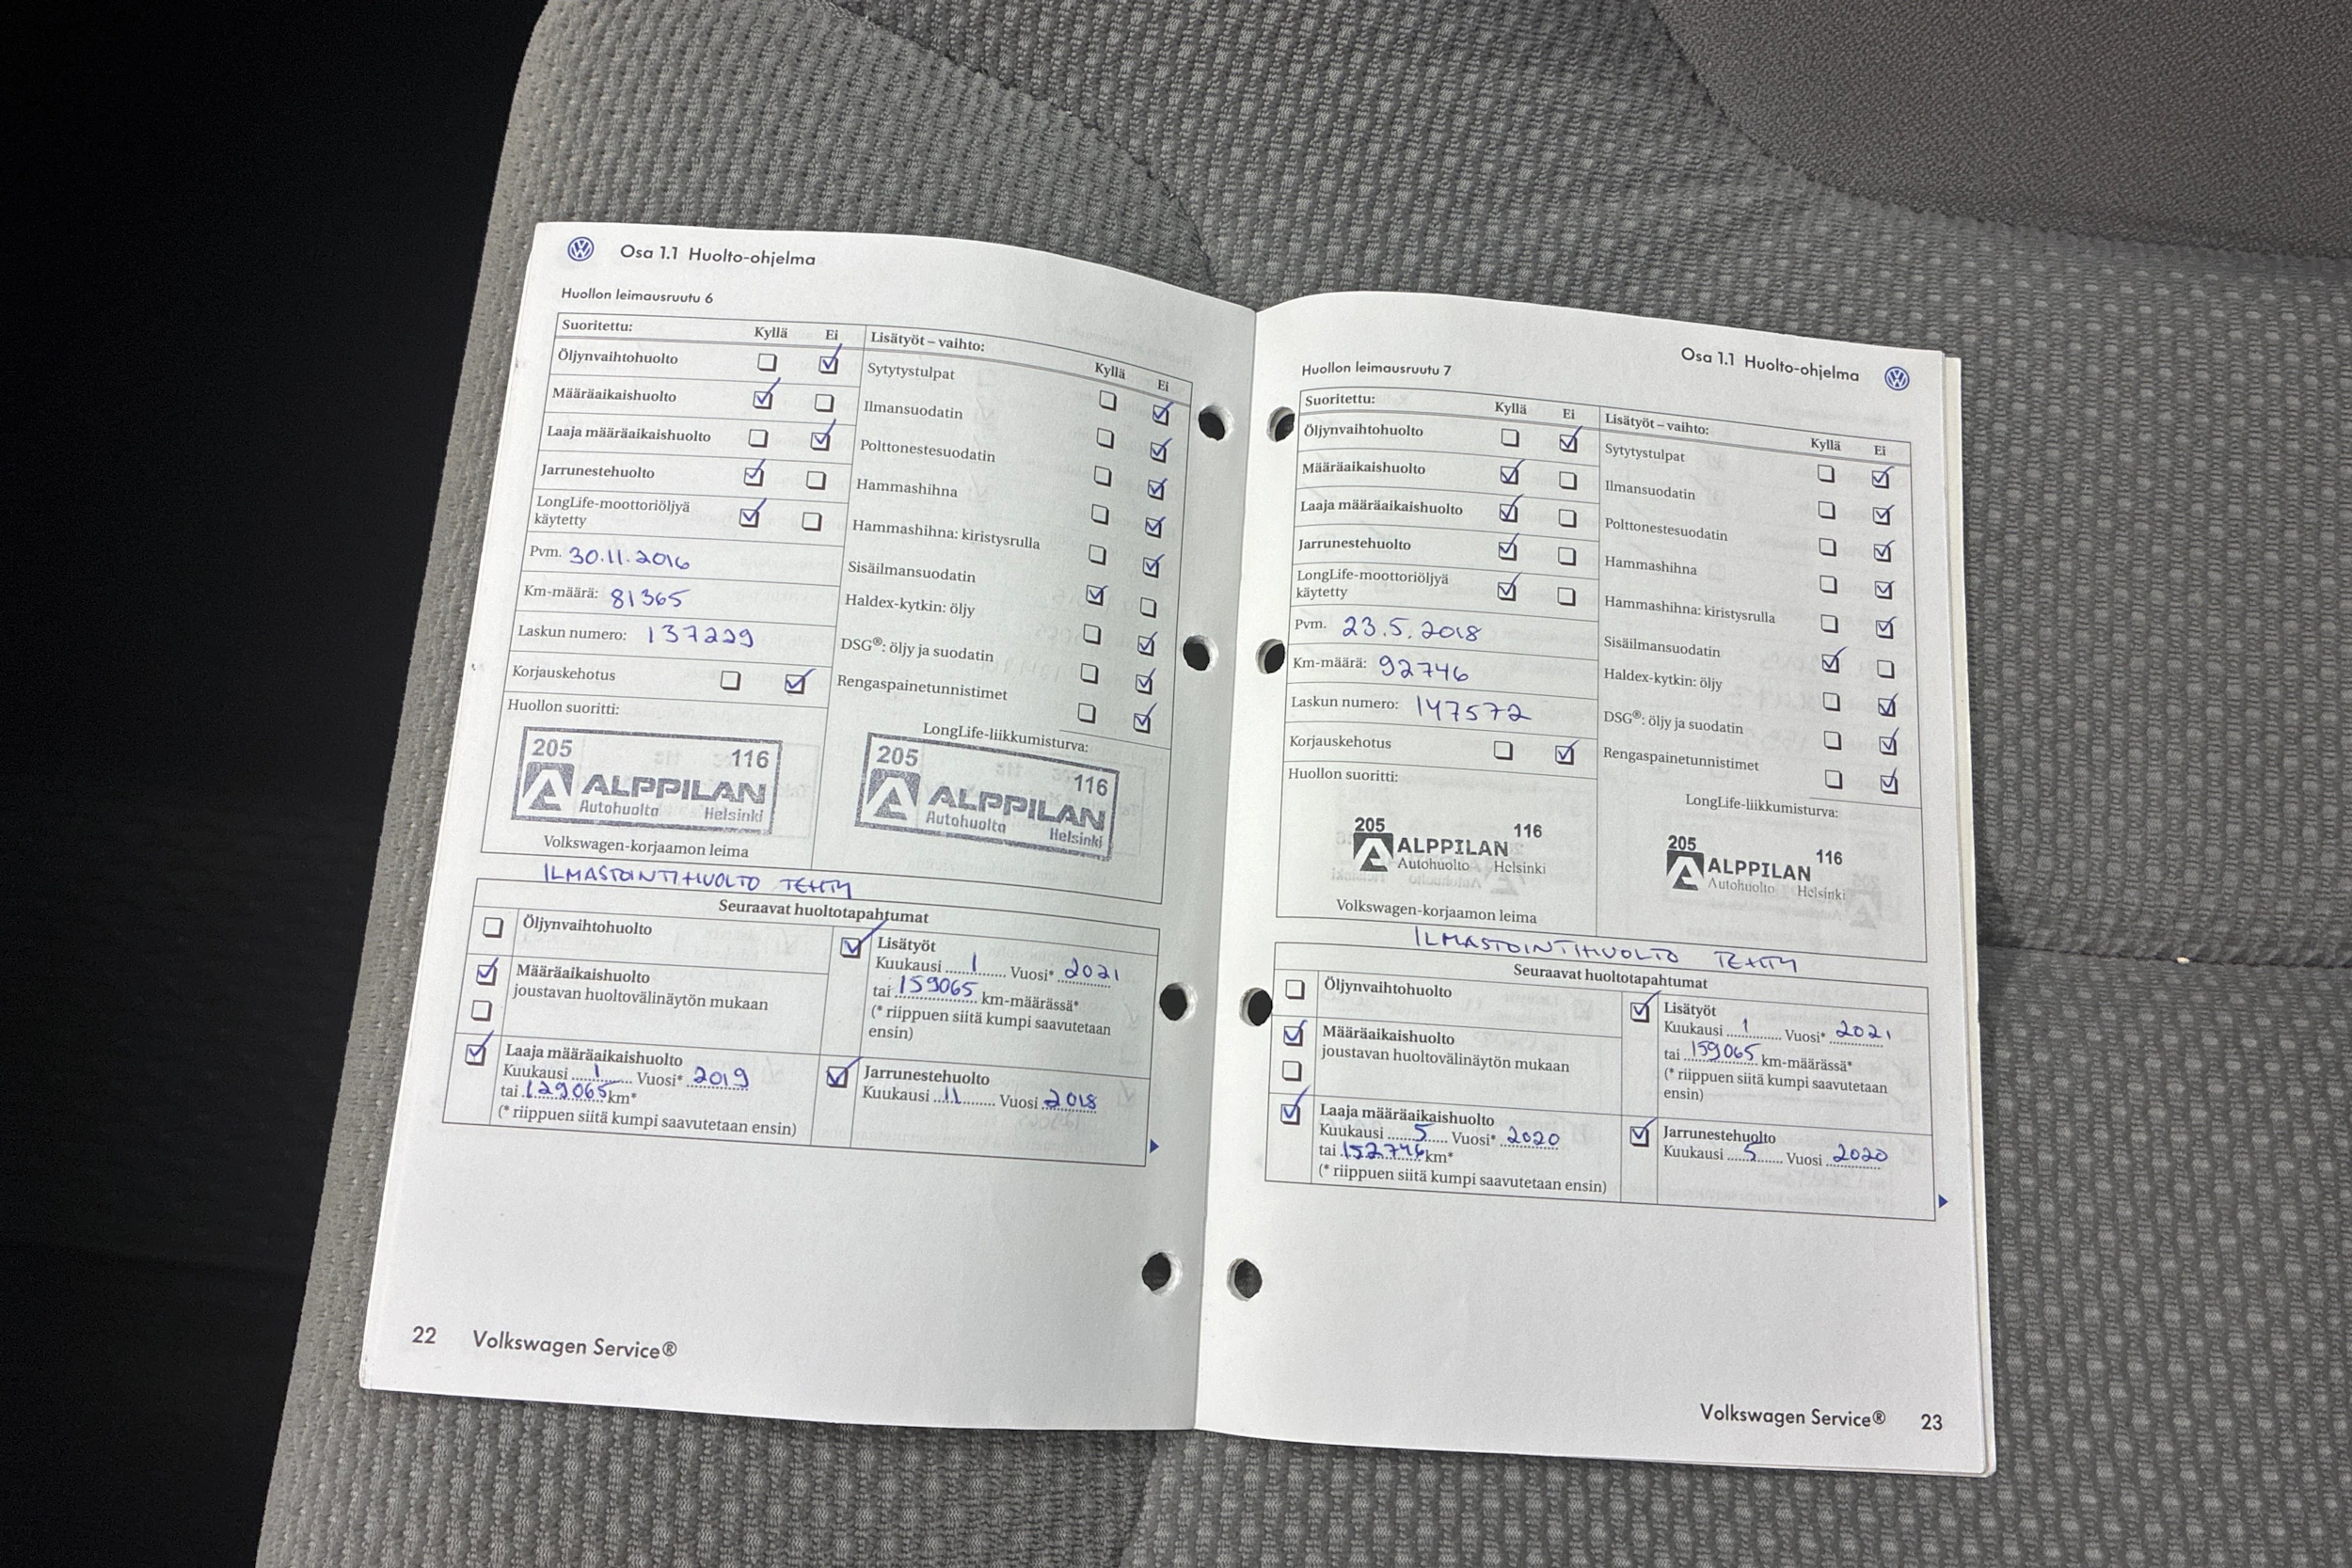 Osa 1.1 Huolto-ohjelma
Huollon leimausruutu 6
Suoritettu: Kyllä Ei
Öljynvaihtohuolto
Määräaikaishuolto
Laaja määräaikaishuolto
Jarrunestehuolto
LongLife-moottoriöljyä
käytetty
Pvm. 30.11.2016
Km-määrä: 81365
Laskun numero: 137229
Korjauskehotus
Huollon suoritti:
205 116
ALPPILAN
Autohuolto Helsinki
Volkswagen-korjaamon leima
Lisätyöt – vaihto: Kyllä Ei
Sytytystulpat
Ilmansuodatin
Polttonestesuodatin
Hammashihna
Hammashihna: kiristysrulla
Sisäilmansuodatin
Haldex-kytkin: öljy
DSG®: öljy ja suodatin
Rengaspainetunnistimet
LongLife-liikkumisturva:
205 116
ALPPILAN
Autohuolto Helsinki
ILMASTOINTIHUOLTO TEHTY
Seuraavat huoltotapahtumat
Öljynvaihtohuolto
Määräaikaishuolto
joustavan huoltovälinäytön mukaan
Laaja määräaikaishuolto
Kuukausi 1 Vuosi* 2019
tai 129065 km*
(* riippuen siitä kumpi saavutetaan ensin)
Lisätyöt
Kuukausi 1 Vuosi* 2021
tai 159065 km-määrässä*
(* riippuen siitä kumpi saavutetaan
ensin)
Jarrunestehuolto
Kuukausi 11 Vuosi 2018
22 Volkswagen Service®
Osa 1.1 Huolto-ohjelma
Huollon leimausruutu 7
Suoritettu: Kyllä Ei
Öljynvaihtohuolto
Määräaikaishuolto
Laaja määräaikaishuolto
Jarrunestehuolto
LongLife-moottoriöljyä
käytetty
Pvm. 23.5.2018
Km-määrä: 92746
Laskun numero: 147572
Korjauskehotus
Huollon suoritti:
205 116
ALPPILAN
Autohuolto Helsinki
Volkswagen-korjaamon leima
Lisätyöt – vaihto: Kyllä Ei
Sytytystulpat
Ilmansuodatin
Polttonestesuodatin
Hammashihna
Hammashihna: kiristysrulla
Sisäilmansuodatin
Haldex-kytkin: öljy
DSG®: öljy ja suodatin
Rengaspainetunnistimet
LongLife-liikkumisturva:
205 116
ALPPILAN
Autohuolto Helsinki
ILMASTOINTIHUOLTO TEHTY
Seuraavat huoltotapahtumat
Öljynvaihtohuolto
Määräaikaishuolto
joustavan huoltovälinäytön mukaan
Laaja määräaikaishuolto
Kuukausi 5 Vuosi* 2020
tai 152746 km*
(* riippuen siitä kumpi saavutetaan ensin)
Lisätyöt
Kuukausi 1 Vuosi* 2021
tai 159065 km-määrässä*
(* riippuen siitä kumpi saavutetaan
ensin)
Jarrunestehuolto
Kuukausi 5 Vuosi 2020
Volkswagen Service® 23